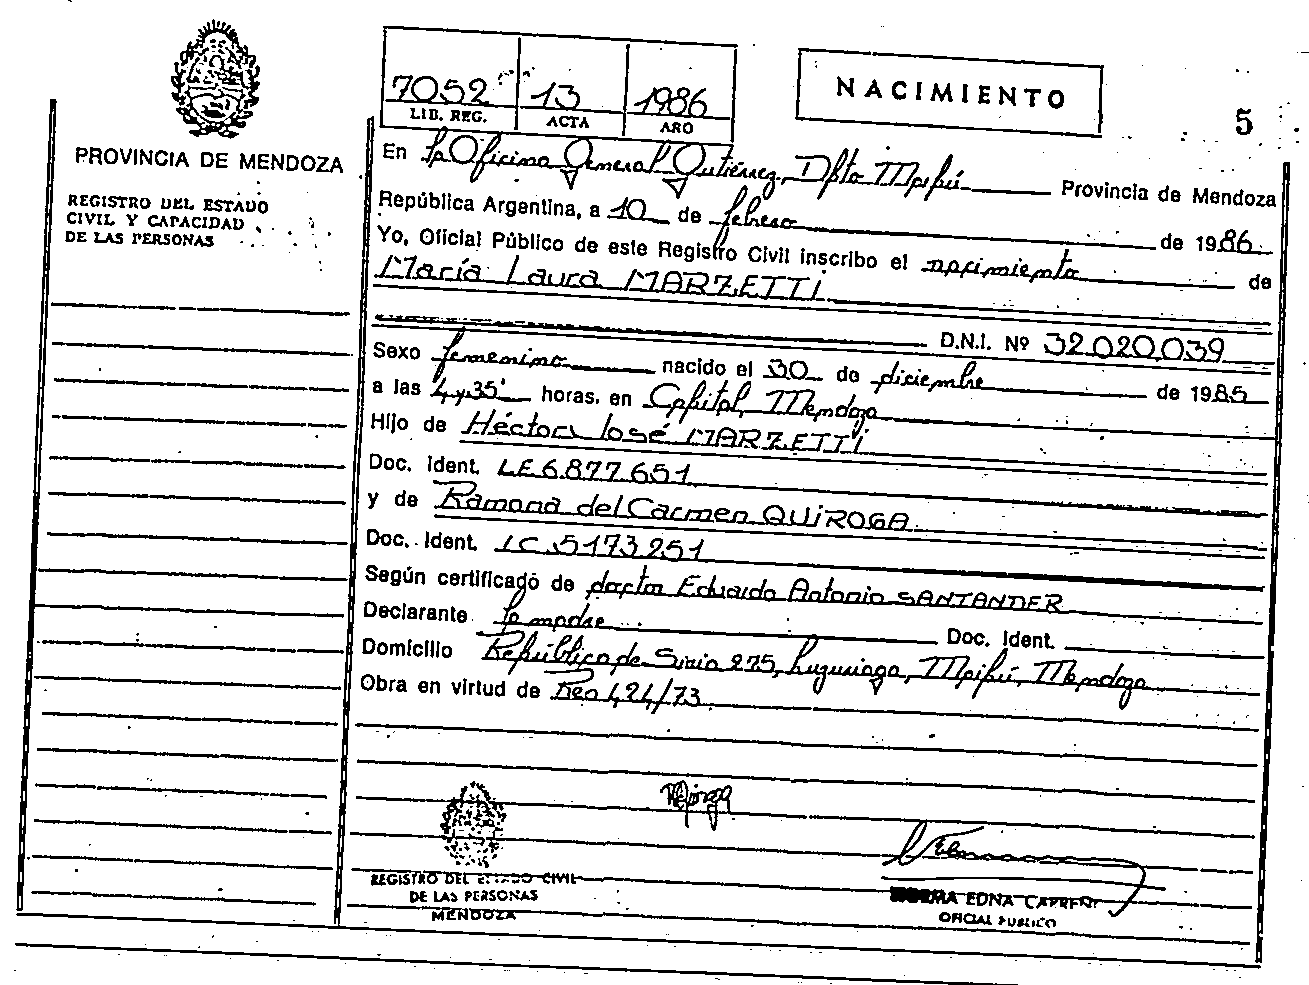 7052 13 1986
LIB. REG. ACTA AÑO
NACIMIENTO
5
PROVINCIA DE MENDOZA
REGISTRO DEL ESTADO
CIVIL Y CAPACIDAD
DE LAS PERSONAS
En la Oficina General Gutiérrez, Dpto Maipú Provincia de Mendoza
República Argentina, a 10 de febrero de 1986
Yo, Oficial Público de este Registro Civil inscribo el nacimiento de
María Laura MARZETTI
D.N.I. Nº 32.020.039
Sexo femenino nacido el 30 de diciembre de 1985
a las 4 y 35' horas, en Capital, Mendoza
Hijo de Héctor José MARZETTI
Doc. Ident. LE 6.877.651
y de Ramona del Carmen QUIROGA
Doc. Ident. LC 5.173.251
Según certificado de doctor Eduardo Antonio SANTANDER
Declarante la madre Doc. Ident.
Domicilio República de Siria 275, Luzuriaga, Maipú, Mendoza
Obra en virtud de Res 424/73
REGISTRO DEL ESTADO CIVIL
DE LAS PERSONAS
MENDOZA
NORMA EDNA
OFICIAL PUBLICO